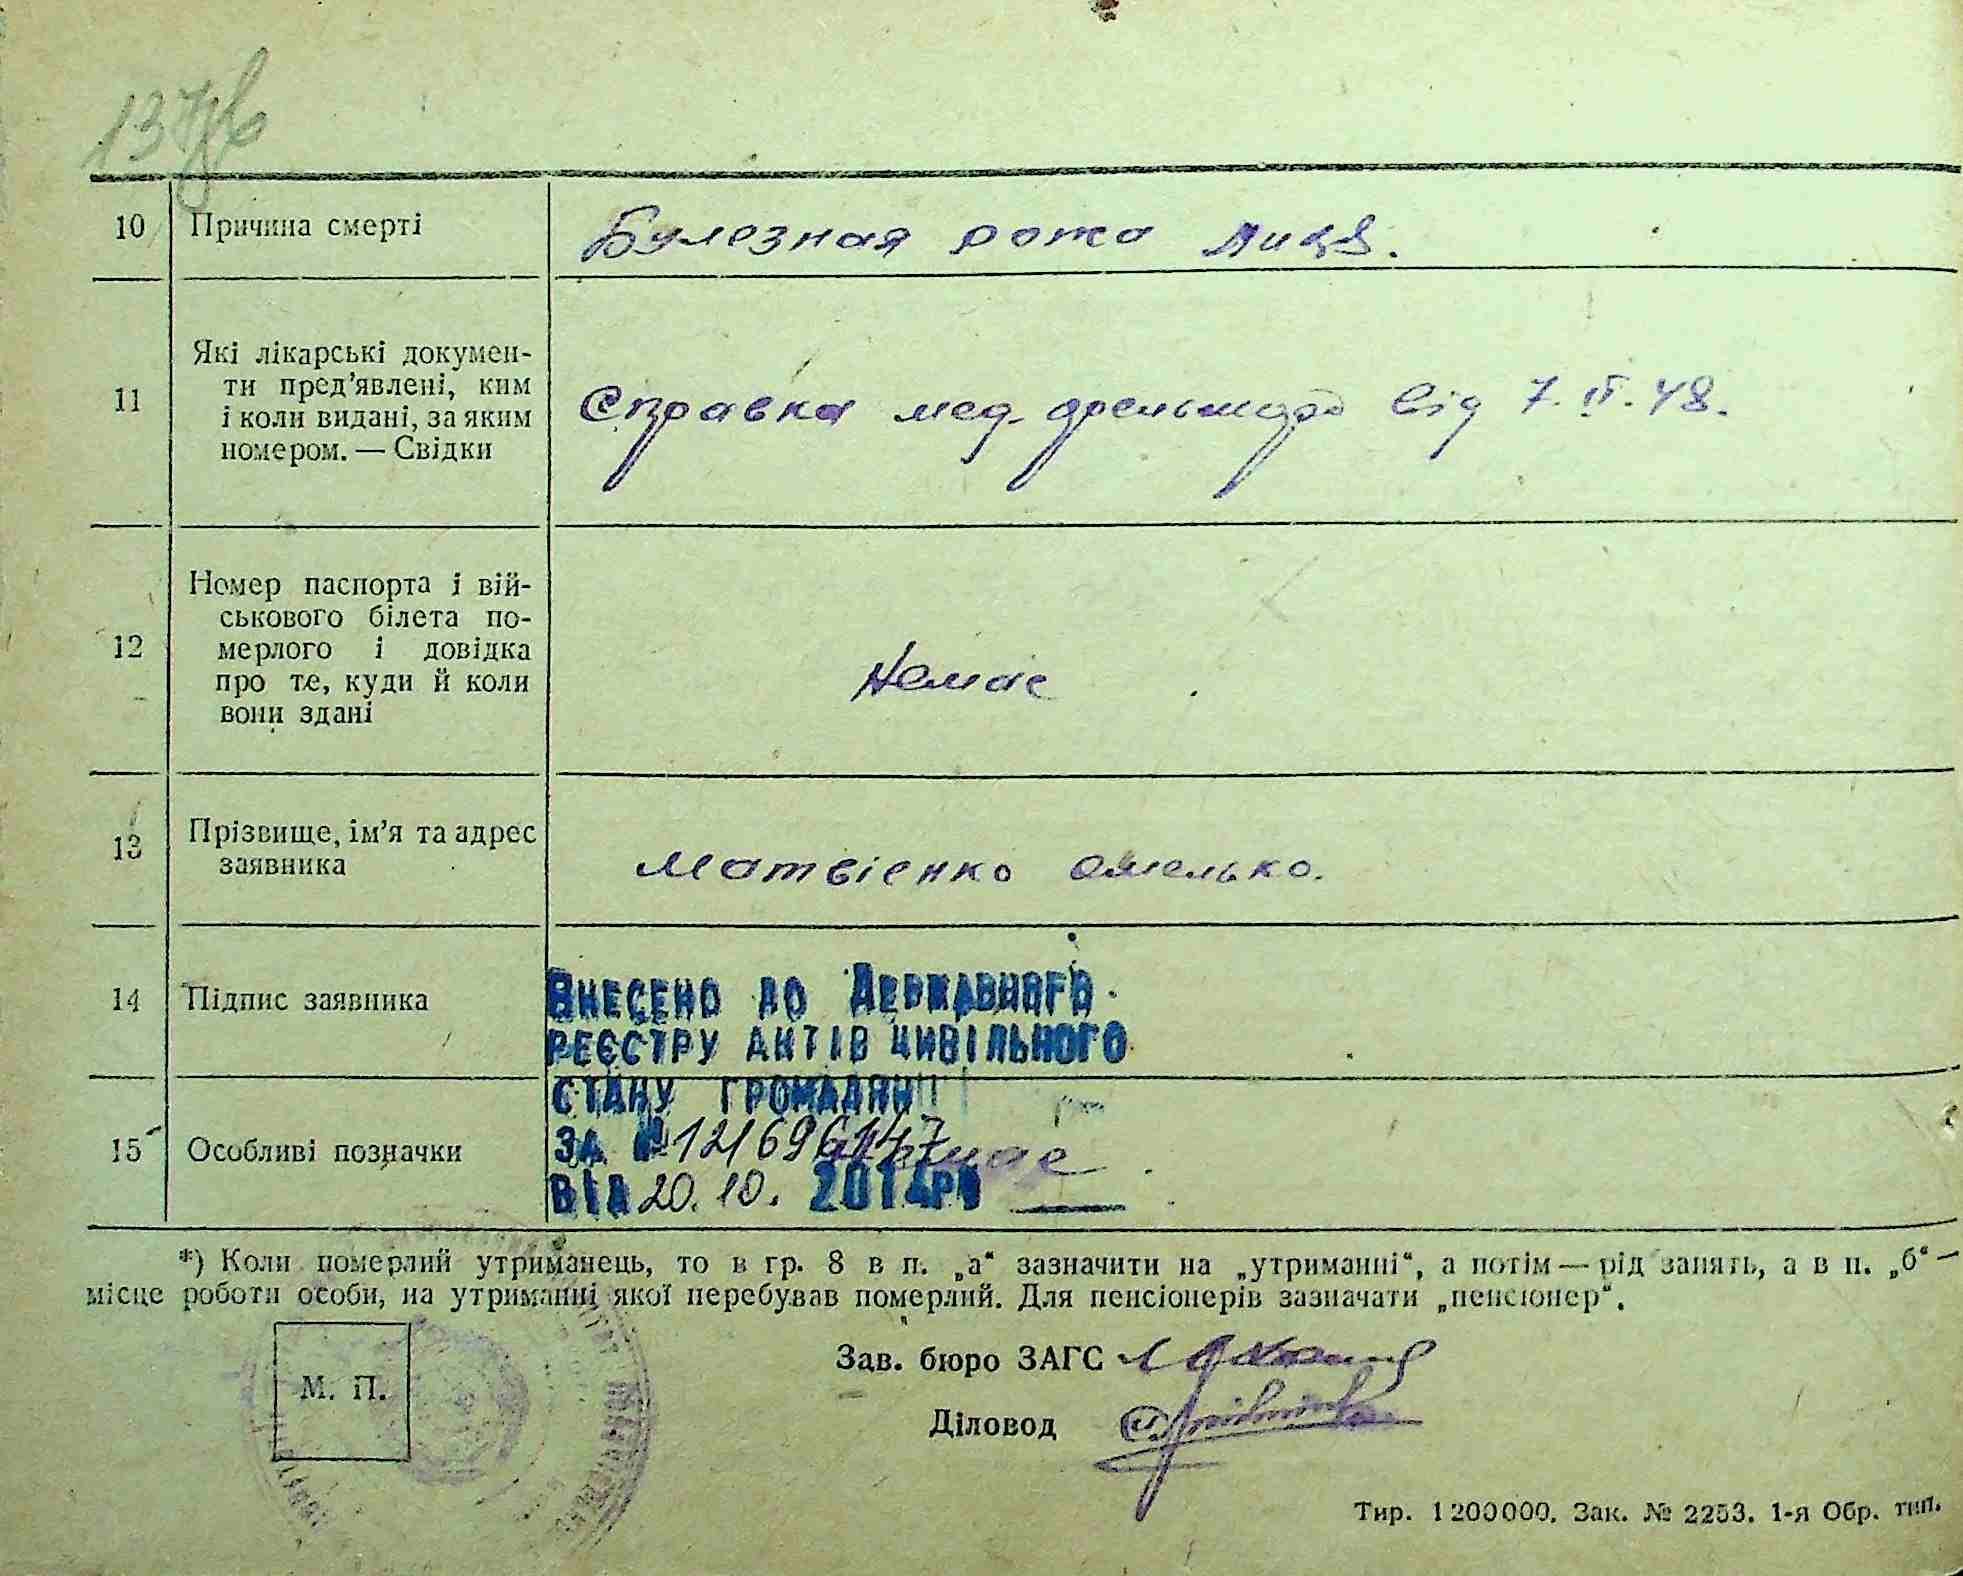 10 Причина смерті Булезная рожа лица.
11 Які лікарські докумен-
ти пред'явлені, ким
і коли видані, за яким
номером. — Свідки
Справка мед. фельшера від 7.II.48.
12 Номер паспорта і вій-
ськового білета по-
мерлого і довідка
про те, куди й коли
вони здані
Немає
13 Прізвище, ім'я та адрес
заявника
Матвієнко Омелько.
14 Підпис заявника
Внесено до Державного
реєстру актів цивільного
стану громадян
15 Особливі позначки
за № 121696147
немає
від 20.10. 2014р
*) Коли померлий утриманець, то в гр. 8 в п. „а“ зазначити на „утриманні“, а потім — рід занять, а в п. „б“ —
місце роботи особи, на утриманні якої перебував померлий. Для пенсіонерів зазначати „пенсіонер“.
М. П.
Зав. бюро ЗАГС
Діловод
Тир. 1200000. Зак. № 2253. 1-я Обр. тип.